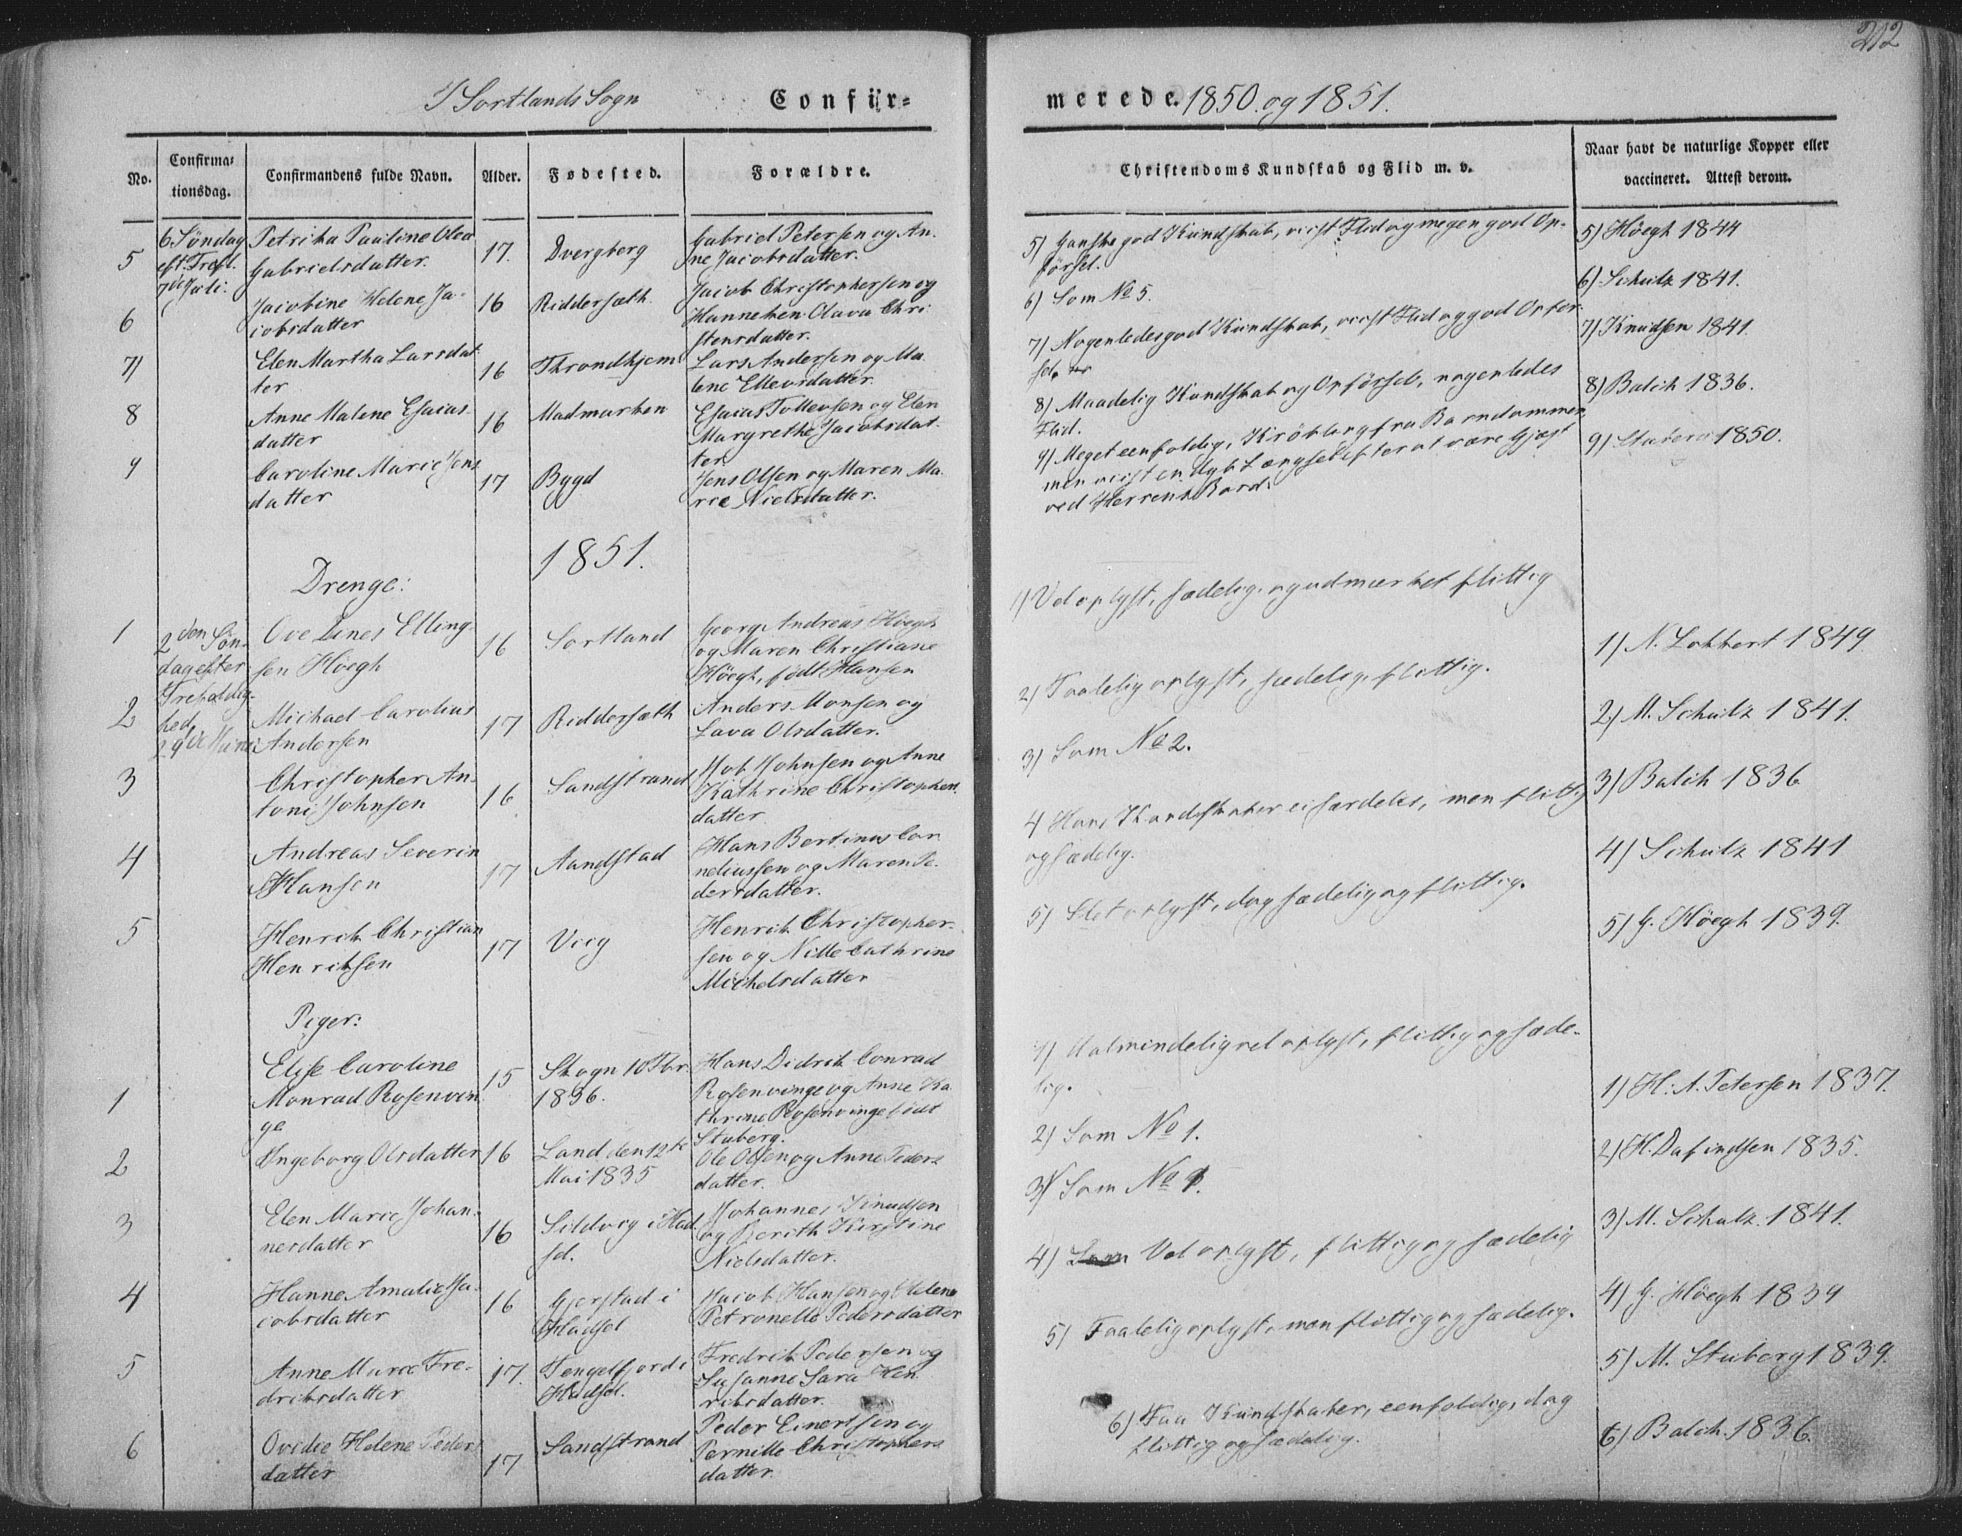 212
I Sortlands Sogn Confir-
merede. 1850. og 1851.
No.
Confirma-
tionsdag.
Confirmandens fulde Navn.
Alder.
Fødested.
Forældre.
Christendoms Kundskab og Flid m. v.
Naar havt de naturlige Kopper eller
vaccineret. Attest derom.
5
6. Søndag
eft. Trefl.
7de Juli.
Petrika Pauline Olea
Gabrielsdatter.
17.
Dvergberg
Gabriel Petersen og An-
ne Jacobsdatter.
5) Ganske god Kundskab, viist Flid og megen god Op-
førsel.
5) Höegh 1844
6
Jacobine Helene Ja-
cobsdatter
16
Riddersæth.
Jacob Christophersen og
Hanneken Olava Chri
stensdatter.
6) Som No 5.
6) Schulz 1841.
7)
Elen Martha Larsdat
ter
16
Throndhjem
Lars Andersen og Ma
lene Ellevsdatter.
7) Nogenledes god Kundskab, viist Flid og god Opfør-
sel.
7) Knudsen 1841.
8
Anne Malene Esaias
datter
16
Madmarken
Esaias Tollevsen og Elen
Margrethe Jacobsdat-
ter
8) Maadelig Kundskab og Opførsel, nogenledes
Flid.
8) Balch 1836.
9
Caroline Marie Jens
datter
17
Bygd
Jens Olsen og Maren Ma-
rie Nielsdatter.
9) Meget eenfoldig, Krøbling fra Barndommen,
men viist en dyb Længsel efter at være Gjæst
ved Herrens Bord.
9) Stuberg 1850.
1851.
Drenge:
1
2den Søn-
dag efter
Trefoldig-
hed
29de Juni
Ove Dines Elling-
sen Höegh
16
Sortland
Georg Andreas Höegh
og Maren Christiane
Höegh, født Hansen
1) Vel oplyst, sædelig, og udmærket flittig
1) N. Lokkert 1849
2
Michael Carolius
Andersen
17
Riddersæth
Anders Monsen og
Lava Olsdatter.
2) Taalelig oplyst, sædelig, flittig.
2) M. Schulz 1841.
3
Christopher An-
toni Johnsen
16
Sandstrand
Job Johnsen og Anne
Kathrine Christophers
datter
3) Som No 2.
3) Balch 1836
4
Andreas Severin
Hansen
17
Aandstad
Hans Bertinus Cor
neliussen og Maren Pe-
dersdatter.
4 Hans Kundskaber ei særdeles, men flittig
og sædelig.
4) Schulz 1841
5
Henrik Christian
Henriksen
17
Viig
Henrik Christopher-
sen og Nille Cathrine
Michelsdatter
5) Slet oplyst, dog sædelig og flittig.
5) G. Höegh 1839.
Piger:
1
Elise Caroline
Monrad Rosenvin
ge
15
Skogn 10 Fbr.
1836.
Hans Didrik Conrad
Rosenvinge og Anne Ka
thrine Rosenvinge født
Stuberg.
1) Aalmindelig vel oplyst, flittig og sæde-
lig.
1) H. A. Petersen 1837.
2
Ingeborg Olsdatter
16
Land den 12te
Mai 1835
Ole Olsen og Anne Peders
datter.
2) Som No 1.
2) H. Dafindsen 1835.
3
Elen Marie Johan-
nesdatter
16
Sildvig i Had
sel.
Johannes Knudsen
og Berith Kirstine
Nielsdatter.
3) Som No 1.
3) M. Schulz 1841.
4
Hanne Amalie Ja-
cobsdatter
16
Gjerstad i
Hadsel
Jacob Hansen og Helene
Petronelle Pedersdatter
4) Som Vel oplyst, flittig og sædelig
4) G. Höegh 1839
5
Anne Marie Fre-
driksdatter
17.
Tengelfjord i
Hadsel.
Fredrik Pedersen og
Susanne Sara Hen
riksdatter.
5) Taalelig oplyst, men flittig og sædelig.
5) M. Stuberg 1839.
6
Ovidie Helene Peders
datter
17
Sandstrand
Peder Einertsen og
Pernille Christophers
datter.
6) Faa Kundskaber, eenfoldig, dog
flittig og sædelig.
6) Balch 1836.